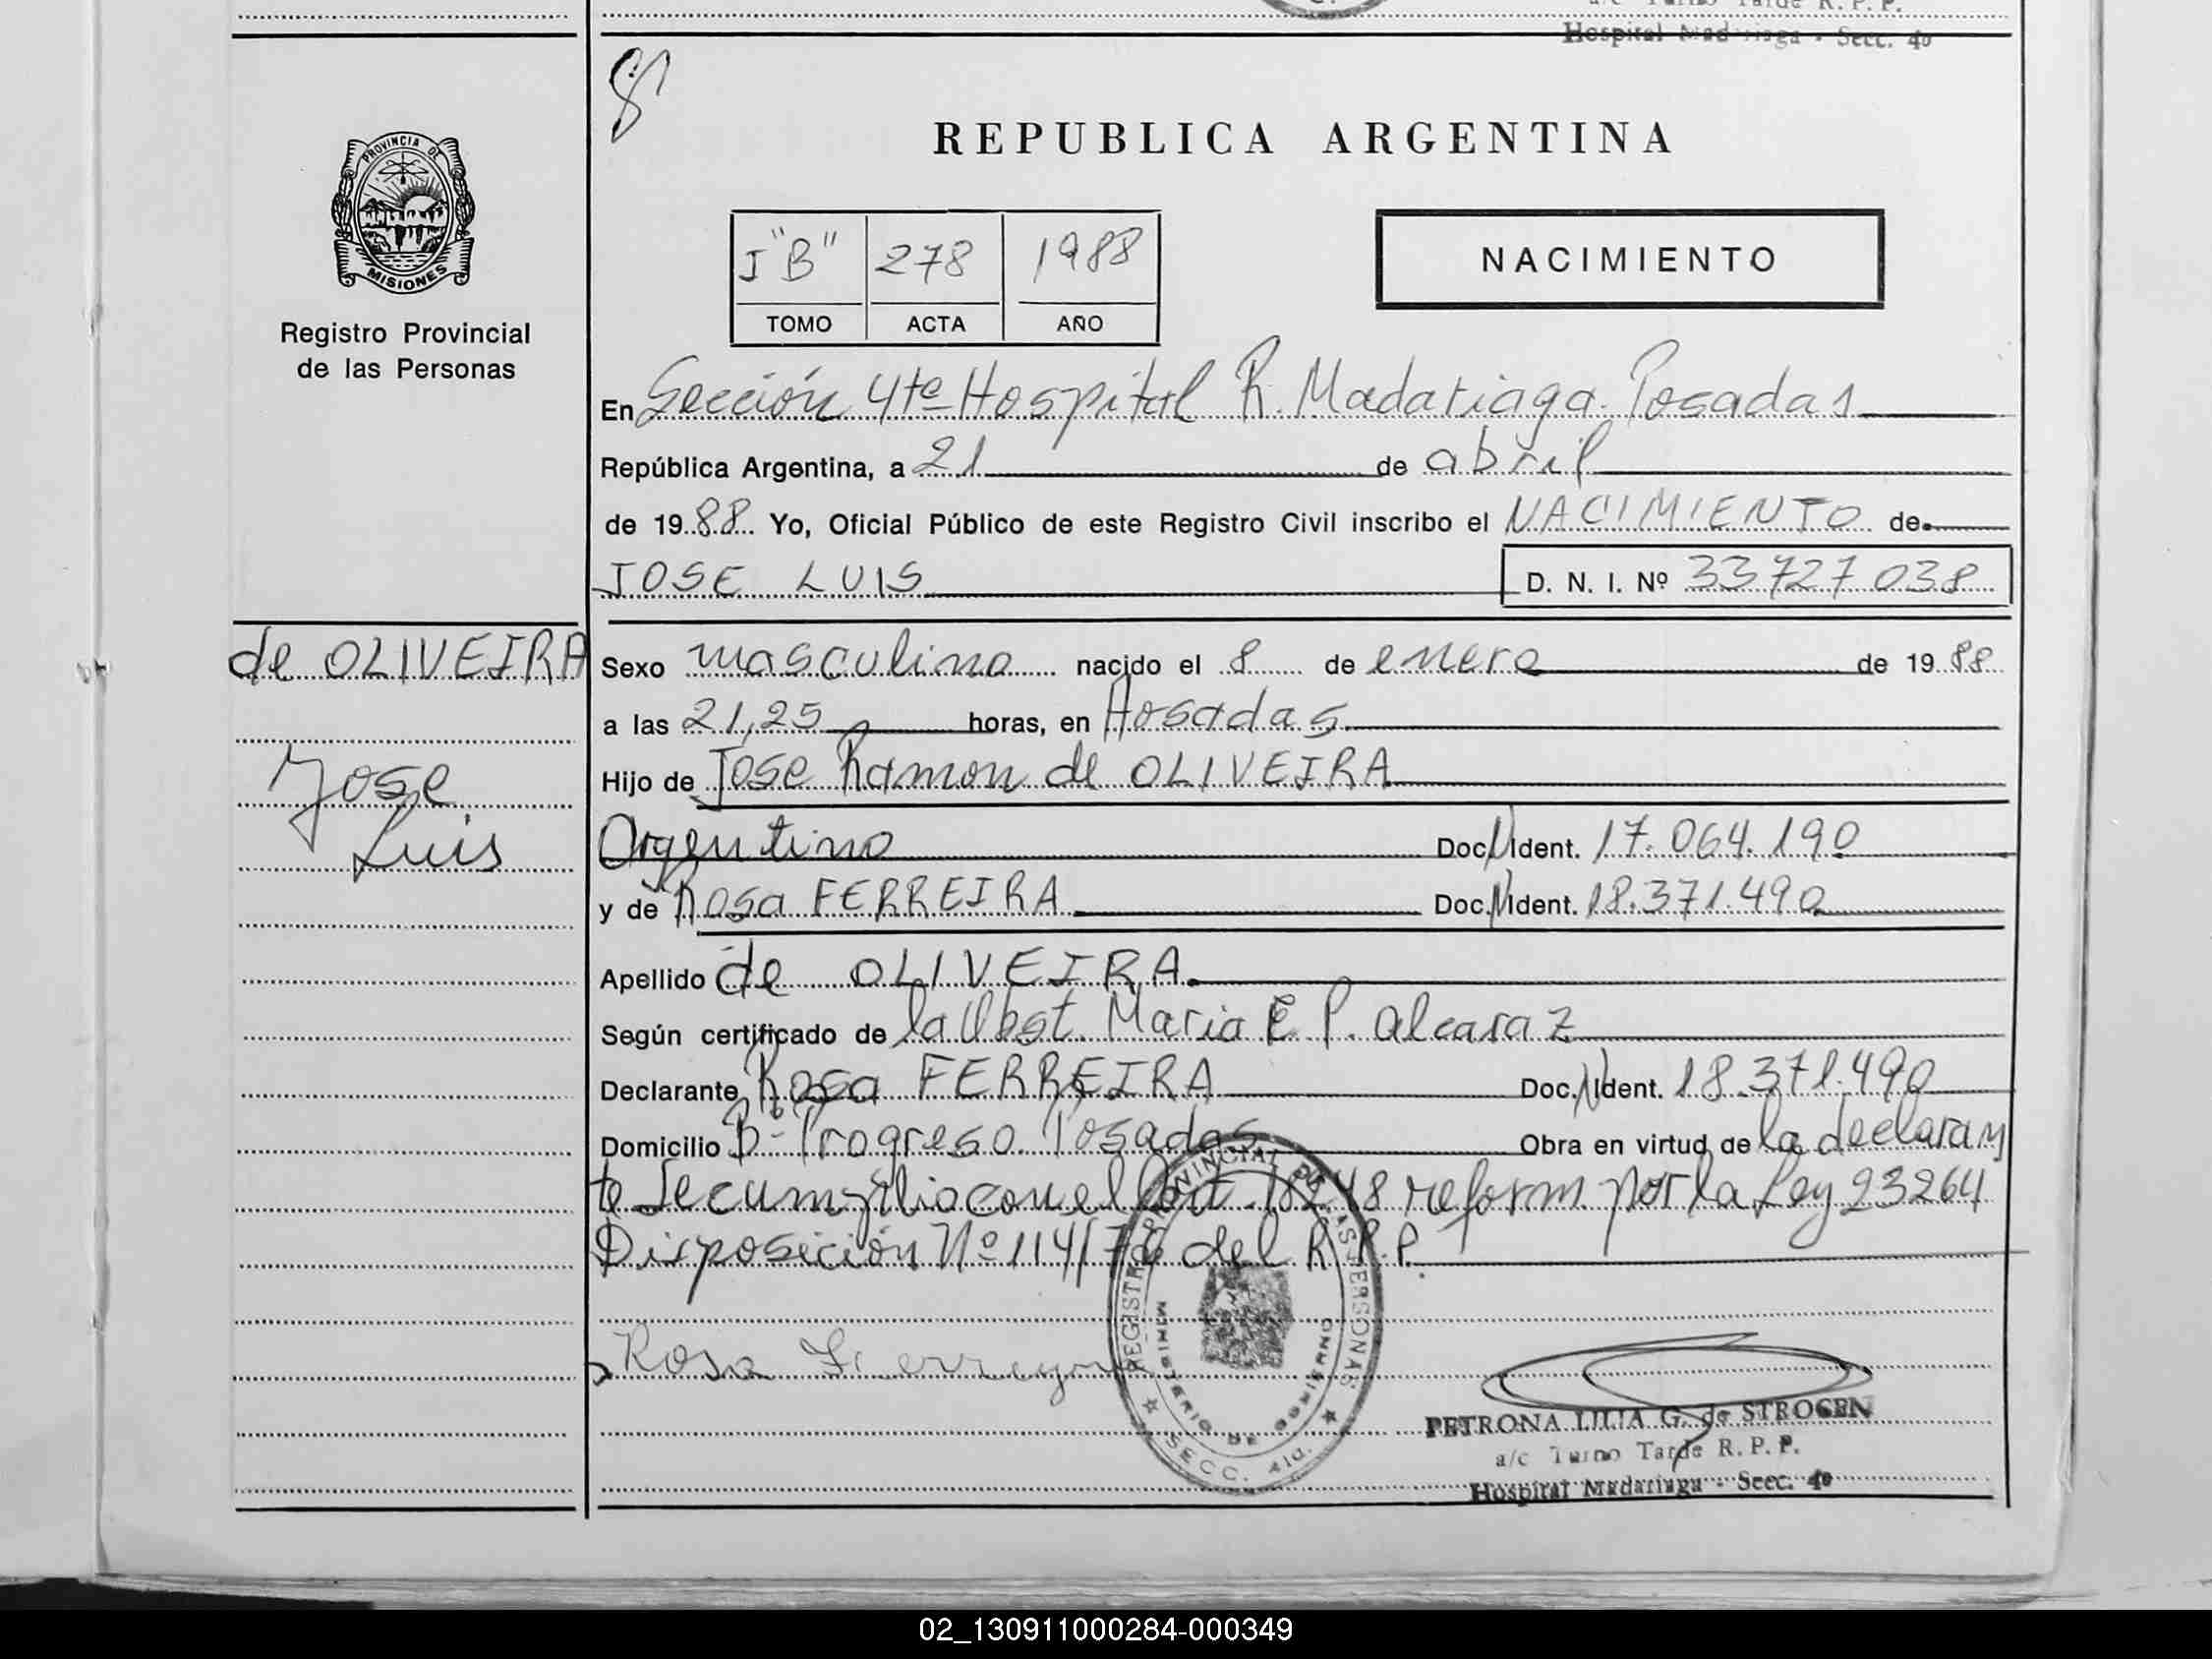 a/c Turno Tarde R. P. P.
Hospital Madariaga - Secc. 4º
REPUBLICA ARGENTINA
PROVINCIA DE
MISIONES
Registro Provincial
de las Personas
J "B" 278 1988
TOMO ACTA AÑO
NACIMIENTO
En Sección 4ta Hospital R. Madariaga. Posadas
República Argentina, a 21 de abril
de 1988 Yo, Oficial Público de este Registro Civil inscribo el NACIMIENTO de
JOSE LUIS D. N. I. Nº 33727.038
de OLIVEIRA
Jose
Luis
Sexo masculino nacido el 8 de enero de 1988
a las 21,25 horas, en Posadas
Hijo de Jose Ramon de OLIVEIRA
Argentino Doc. N Ident. 17.064.190
y de Rosa FERREIRA Doc. N Ident. 18.371.490
Apellido de OLIVEIRA
Según certificado de la Obst. Maria E. P. Alcaraz
Declarante Rosa FERREIRA Doc. N Ident. 18.371.490
Domicilio Bº Progreso. Posadas Obra en virtud de la declaran
te Se cumplio con el 18248 reform. por la Ley 23264
Disposición Nº 114/ del R.P.P.
Rosa
REGISTRO PROVINCIAL DE LAS PERSONAS
MINISTERIO DE GOBIERNO
SECC. 4ta.
PETRONA LILIA G. de STROGEN
a/c Turno Tarde R. P. P.
Hospital Madariaga - Secc. 4º
02_130911000284-000349